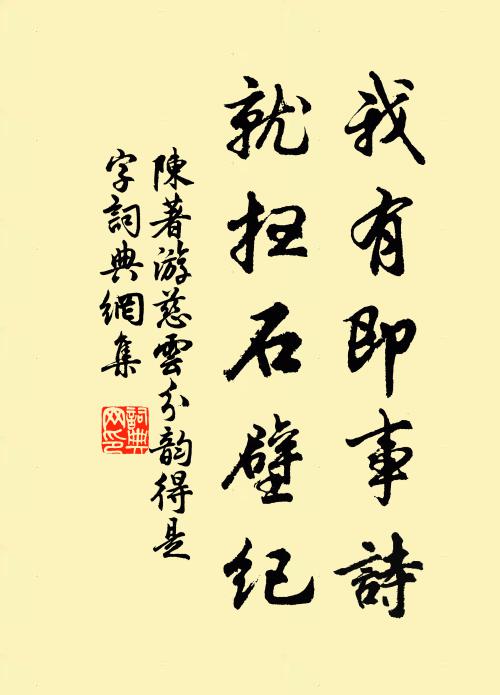 我有即事詩
就扫石壁紀
陳著游慈雲分韵得是
字詞典網集
詞典网印